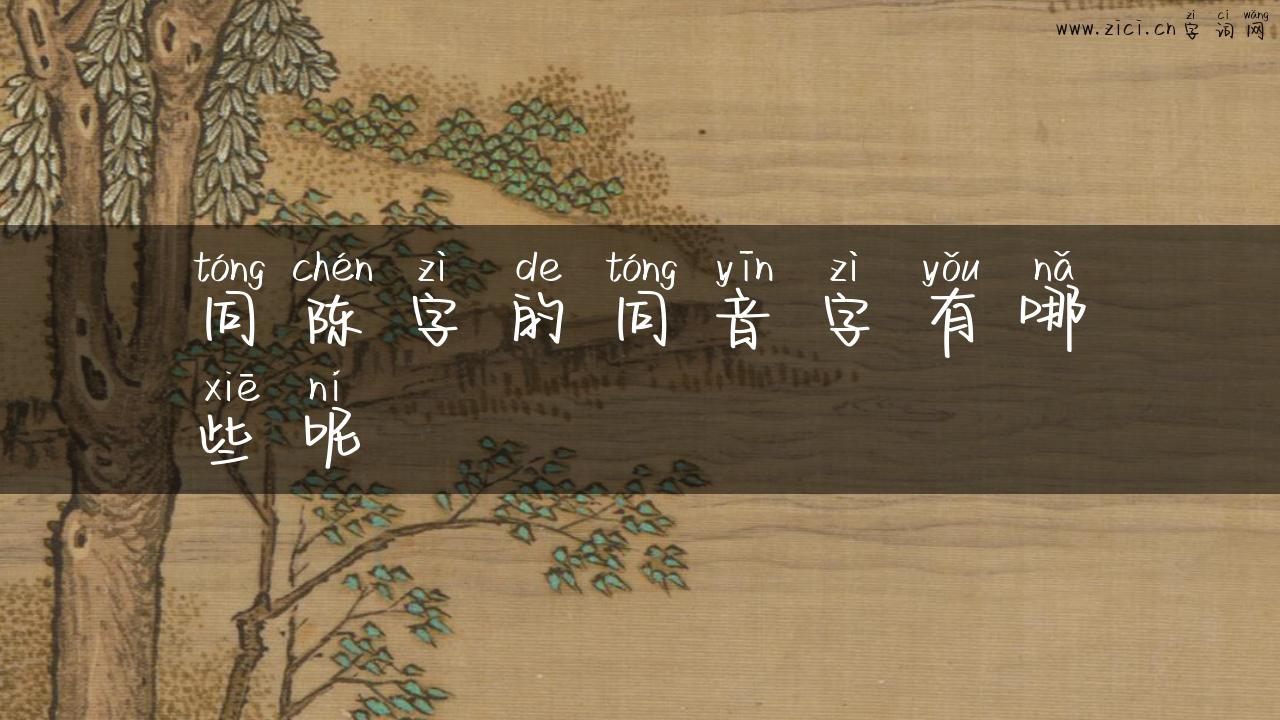 zì cí wǎng
www.zici.cn 字词网
tóng chén zì de tóng yīn zì yǒu nǎ
同陈字的同音字有哪
xiē ní
些呢